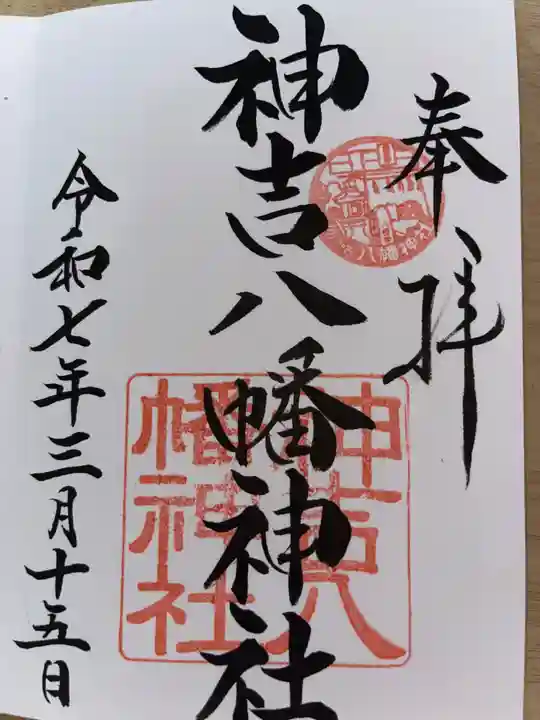 奉拝
神吉八幡神社
神吉八
幡神社
令和七年三月十五日